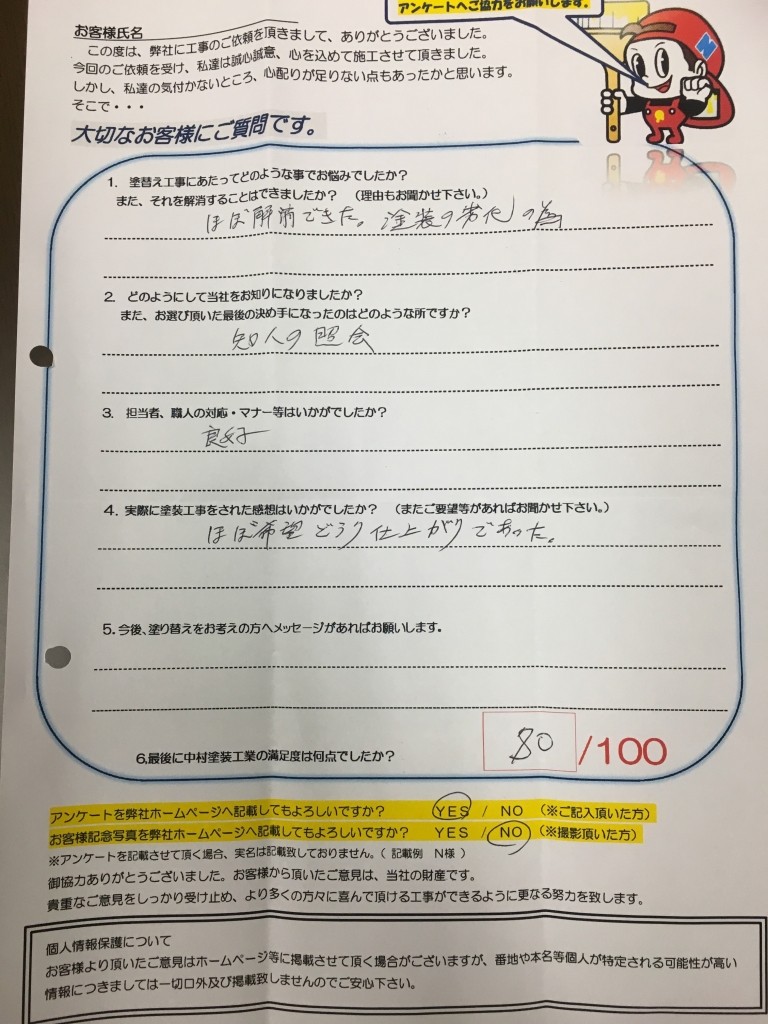 アンケートへご協力をお願いします。
お客様氏名
この度は、弊社に工事のご依頼を頂きまして、ありがとうございました。
今回のご依頼を受け、私達は誠心誠意、心を込めて施工させて頂きました。
しかし、私達の気付かないところ、心配りが足りない点もあったかと思います。
そこで・・・
大切なお客様にご質問です。
N
1. 塗替え工事にあたってどのような事でお悩みでしたか?
また、それを解消することはできましたか? (理由もお聞かせ下さい。)
ほぼ解消できた。塗装の劣化の為
2. どのようにして当社をお知りになりましたか?
また、お選び頂いた最後の決め手になったのはどのような所ですか?
知人の照会
3. 担当者、職人の対応・マナー等はいかがでしたか?
良好
4. 実際に塗装工事をされた感想はいかがでしたか? (またご要望等があればお聞かせ下さい。)
ほぼ希望どうり仕上がりであった。
5. 今後、塗り替えをお考えの方へメッセージがあればお願いします。
6.最後に中村塗装工業の満足度は何点でしたか? 80 /100
アンケートを弊社ホームページへ記載してもよろしいですか? YES / NO (※ご記入頂いた方)
お客様記念写真を弊社ホームページへ記載してもよろしいですか? YES / NO (※撮影頂いた方)
※アンケートを記載させて頂く場合、実名は記載致しておりません。( 記載例 N様 )
御協力ありがとうございました。お客様から頂いたご意見は、当社の財産です。
貴重なご意見をしっかり受け止め、より多くの方々に喜んで頂ける工事ができるように更なる努力を致します。
個人情報保護について
お客様より頂いたご意見はホームページ等に掲載させて頂く場合がございますが、番地や本名等個人が特定される可能性が高い
情報につきましては一切口外及び掲載致しませんのでご安心下さい。